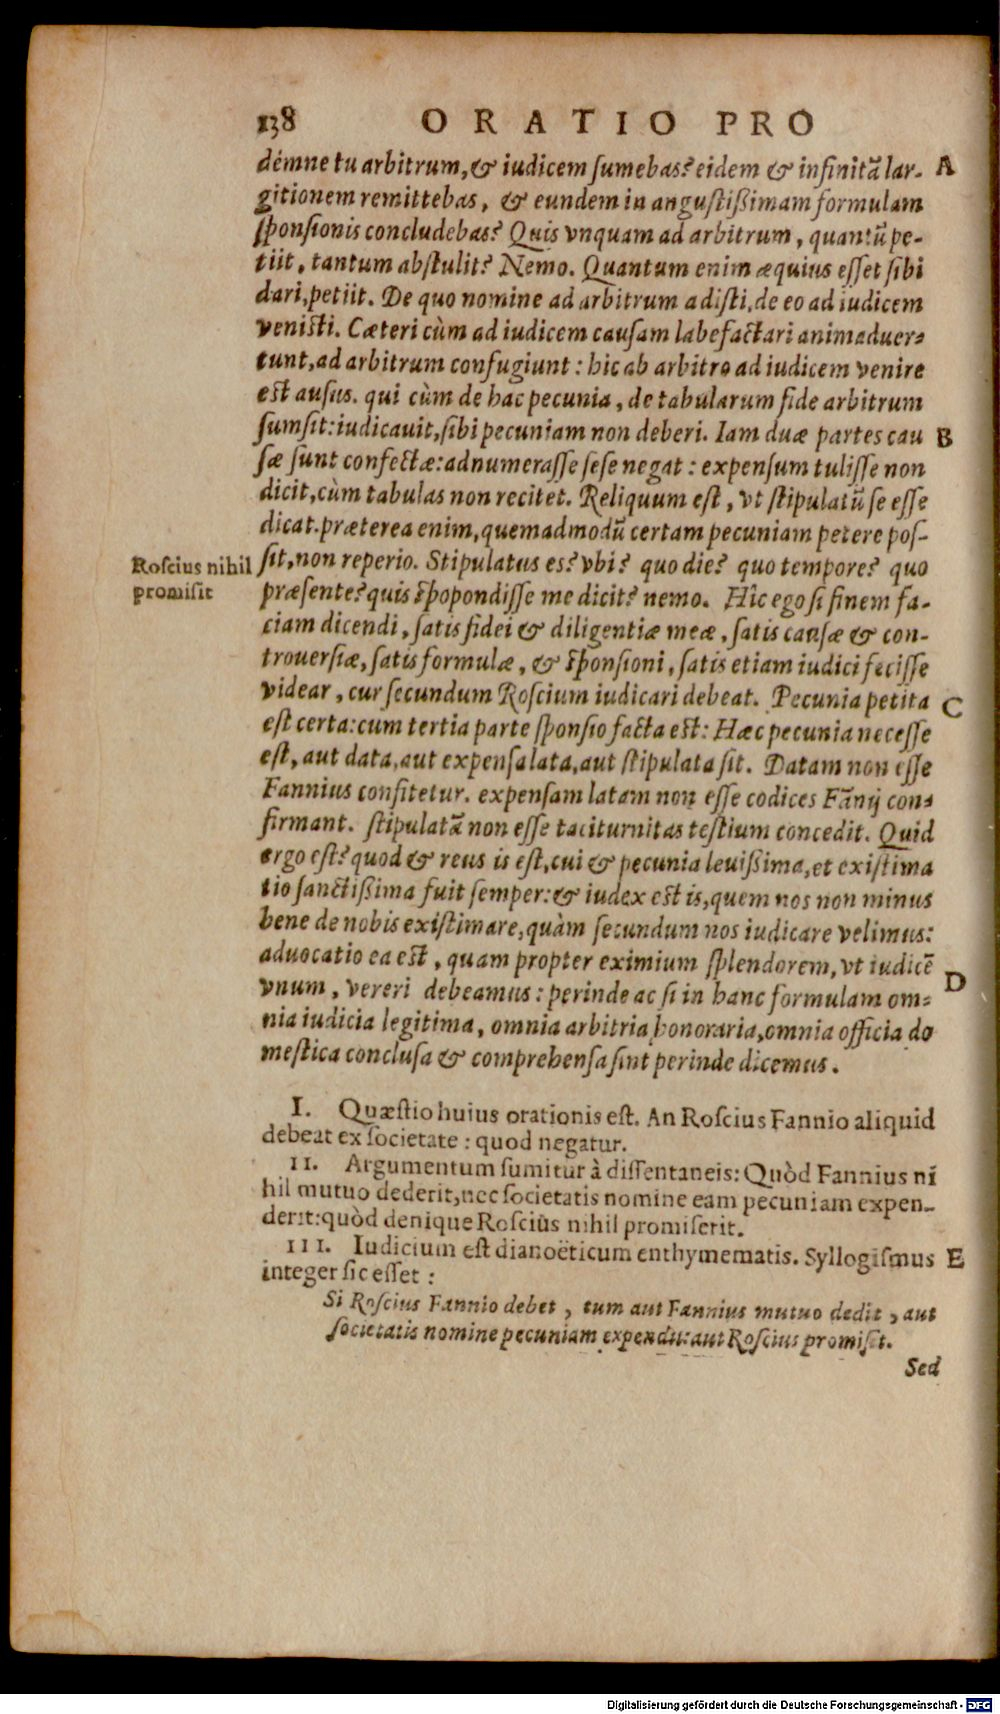 138 ORATIO PRO
démne tu arbitrum, & iudicem ſumebas? eidem & infinitā lar- A
gitionem remittebas, & eundem in anguſtißimam formulam
ſponſionis concludebas? Quis vnquam ad arbitrum, quantū pe-
tiit, tantum abſtulit? Nemo. Quantum enim æquius eſſet ſibi
dari, petiit. De quo nomine ad arbitrum adiſti, de eo ad iudicem
veniſti. Cæteri cùm ad iudicem cauſam labefactari animaduer-
tunt, ad arbitrum confugiunt: hic ab arbitro ad iudicem venire
eſt auſus. qui cùm de hac pecunia, de tabularum fide arbitrum
ſumſit: iudicauit, ſibi pecuniam non deberi. Iam duæ partes cau B
ſæ ſunt confectæ: adnumeraſſe ſeſe negat: expenſum tuliſſe non
dicit, cùm tabulas non recitet. Reliquum eſt, vt ſtipulatū ſe eſſe
dicat. præterea enim, quemadmodū certam pecuniam petere poſ-
Roſcius nihil
promiſit
ſit, non reperio. Stipulatus es? vbi? quo die? quo tempore? quo
præſente? quis ſpopondiſſe me dicit? nemo. Hîc ego ſi finem fa-
ciam dicendi, ſatis fidei & diligentiæ meæ, ſatis cauſæ & con-
trouerſiæ, ſatis formulæ, & ſponſioni, ſatis etiam iudici feciſſe
videar, cur ſecundum Roſcium iudicari debeat. Pecunia petita C
eſt certa: cum tertia parte ſponſio facta eſt: Hæc pecunia neceſſe
eſt, aut data, aut expenſa lata, aut ſtipulata ſit. Datam non eſſe
Fannius confitetur. expenſam latam non eſſe codices Fānij con-
firmant. ſtipulatā non eſſe taciturnitas teſtium concedit. Quid
ergo eſt? quod & reus is eſt, cui & pecunia leuißima, et exiſtima
tio ſanctißima fuit ſemper: & iudex eſt is, quem nos non minus
bene de nobis exiſtimare, quàm ſecundum nos iudicare velimus:
aduocatio ea eſt, quam propter eximium ſplendorem, vt iudicē D
vnum, vereri debeamus: perinde ac ſi in hanc formulam om-
nia iudicia legitima, omnia arbitria honoraria, omnia officia do
meſtica concluſa & comprehenſa ſint perinde dicemus.
I. Quæſtio huius orationis eſt. An Roſcius Fannio aliquid
debeat ex ſocietate: quod negatur.
II. Argumentum ſumitur à diſſentaneis: Quòd Fannius ni
hil mutuo dederit, nec ſocietatis nomine eam pecuniam expen-
derit: quòd denique Roſcius nihil promiſerit.
III. Iudicium eſt dianoëticum enthymematis. Syllogiſmus E
integer ſic eſſet:
Si Roſcius Fannio debet, tum aut Fannius mutuo dedit, aut
ſocietatis nomine pecuniam expendit: aut Roſcius promiſit.
Sed
Digitalisierung gefördert durch die Deutsche Forschungsgemeinschaft - DFG